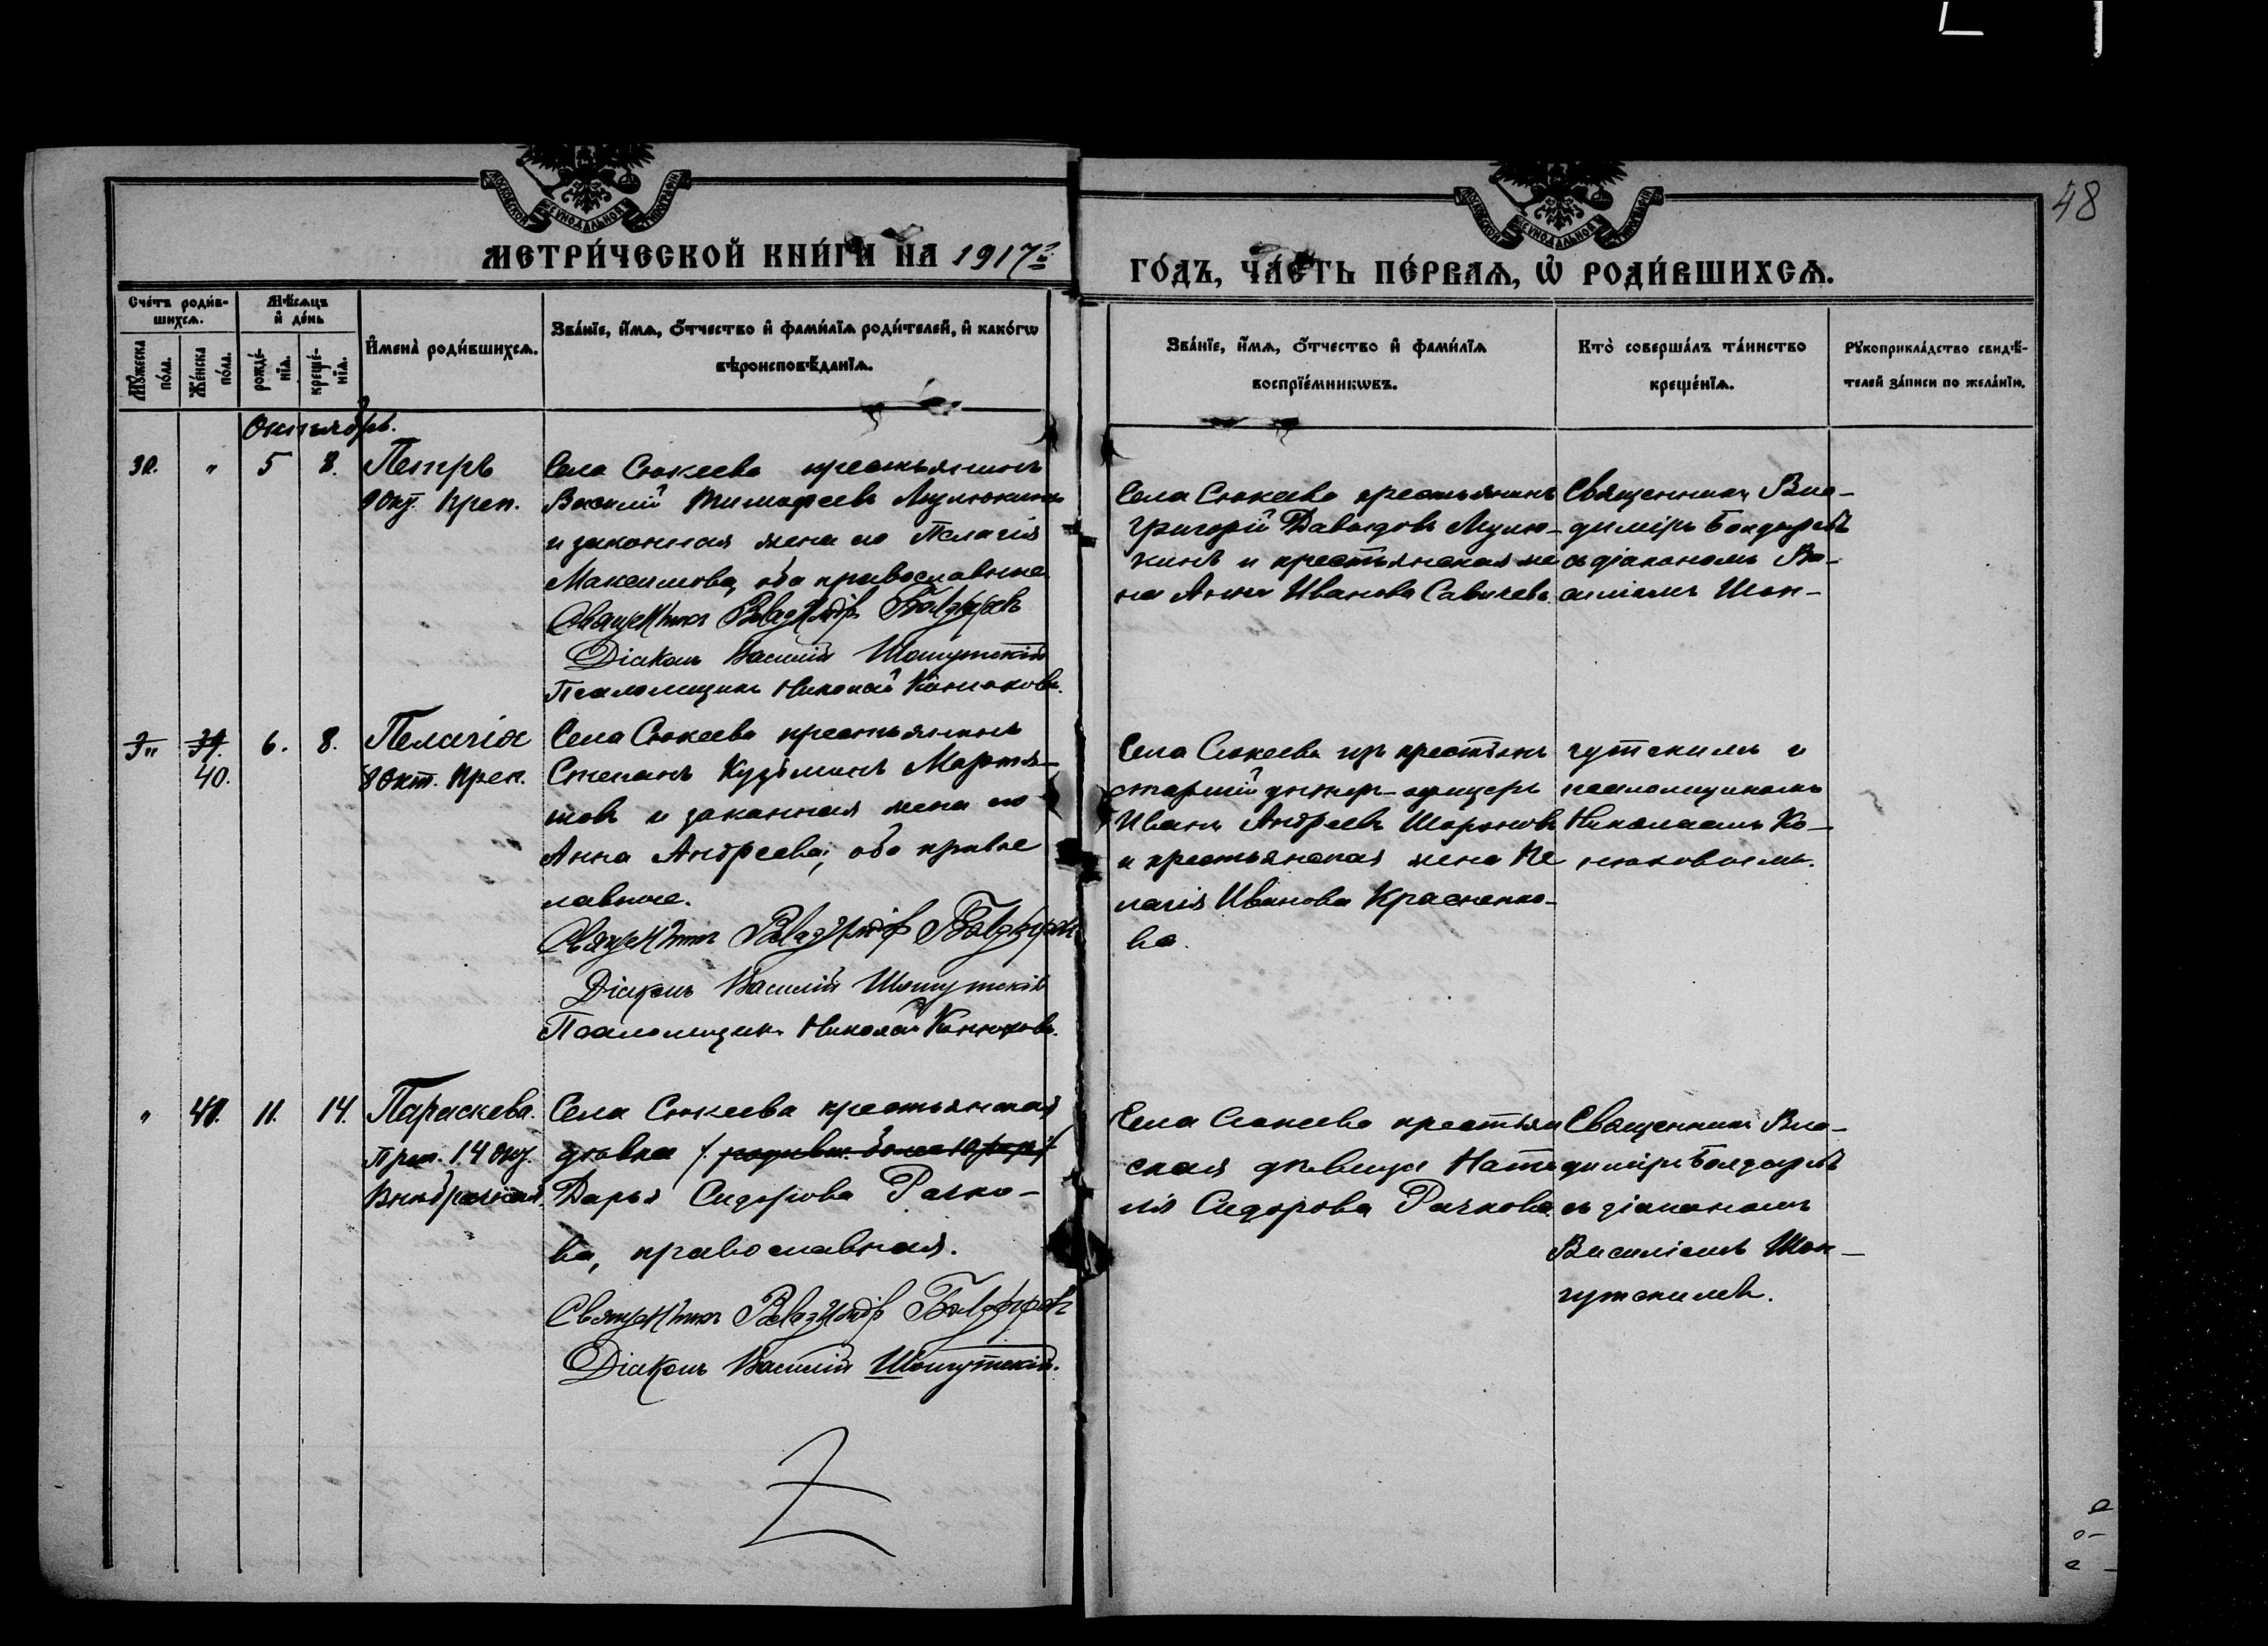 48
МОСКОВСКОЙ СѴНОДАЛЬНОЙ ТИПОГРАФІИ
МОСКОВСКОЙ СѴНОДАЛЬНОЙ ТИПОГРАФІИ
МЕТРИ́ЧЕСКОЙ КНИ́ГИ НА 1917 г.
ГО́ДЪ, ЧА́СТЬ ПЕ́РВАѦ, Ѡ҆ РОДИ́ВШИХСѦ.
Сче́тъ роди́в-
шихсѧ.
Мѣ́сѧцъ
и҆ де́нь
Мꙋ́жеска
по́ла.
Же́нска
по́ла.
рожде́-
нїѧ.
креще́-
нїѧ.
И҆мена̀ роди́вшихсѧ.
Зва́нїе, и҆́мѧ, ѻ҆́тчество и҆ фами́лїѧ роди́телей, и҆ како́гѡ
вѣроисповѣ́данїѧ.
Зва́нїе, и҆́мѧ, ѻ҆́тчество и҆ фами́лїѧ
воспрїе́мникѡвъ.
Кто̀ соверша́лъ та́инство
креще́нїѧ.
Рꙋкоприкла́дство свидѣ́-
телей за́писи по жела́нїю.
Октябрь.
30. " 5 8. Петръ
8 Окт. Креп.
Села Сюкеева крестьянинъ
Василій Тимофеевъ Мулюкинъ
и законная жена его Пелагія
Максимова, оба православные
Священникъ Владиміръ Болдыревъ
Діаконъ Василій Шонгутскій
Псаломщикъ Николай Канюковъ.
Села Сюкеева крестьянинъ
Григорій Давыдовъ Мулю-
кинъ и крестьянская же
на Анна Ивановна Савичева.
Священникъ Вла-
диміръ Болдыревъ
съ діакономъ Ва-
силіемъ Шон-
39. 6. 8. Пелагія
40.
8 Окт. Креп.
Села Сюкеева крестьянинъ
Степанъ Кузьминъ Мартья-
новъ и законная жена его
Анна Андреева; оба правос
лавные.
Священникъ Владиміръ Болдыревъ
Діаконъ Василій Шонгутскій
Псаломщикъ Николай Канюковъ.
Села Сюкеева крестьян
старшій унтеръ-офицеръ
Иванъ Андреевъ Шароновъ
и крестьянская жена Пе
лагія Иванова Красненко-
ва.
гутскимъ и
псаломщикомъ
Николаемъ Ка-
нюковымъ.
" 40. 11. 14. Параскева.
Креп. 14 Окт.
Внѣбрачная.
Села Сюкеева крестьянская
дѣвка
Дарья Сидорова Рачко-
ва, православная.
Священникъ Владиміръ Болдыревъ
Діаконъ Василій Шонгутскій.
Села Сюкеева крестьян
ская дѣвица Ната
лія Сидорова Рачкова.
Священникъ Вла-
диміръ Болдыревъ
съ діакономъ
Василіемъ Шон-
гутскимъ.